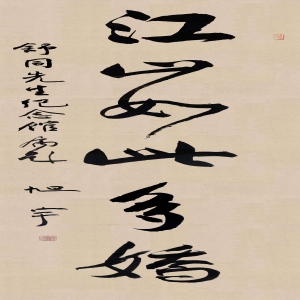 江山如此多嬌
舒同先生纪念馆属
旭宇